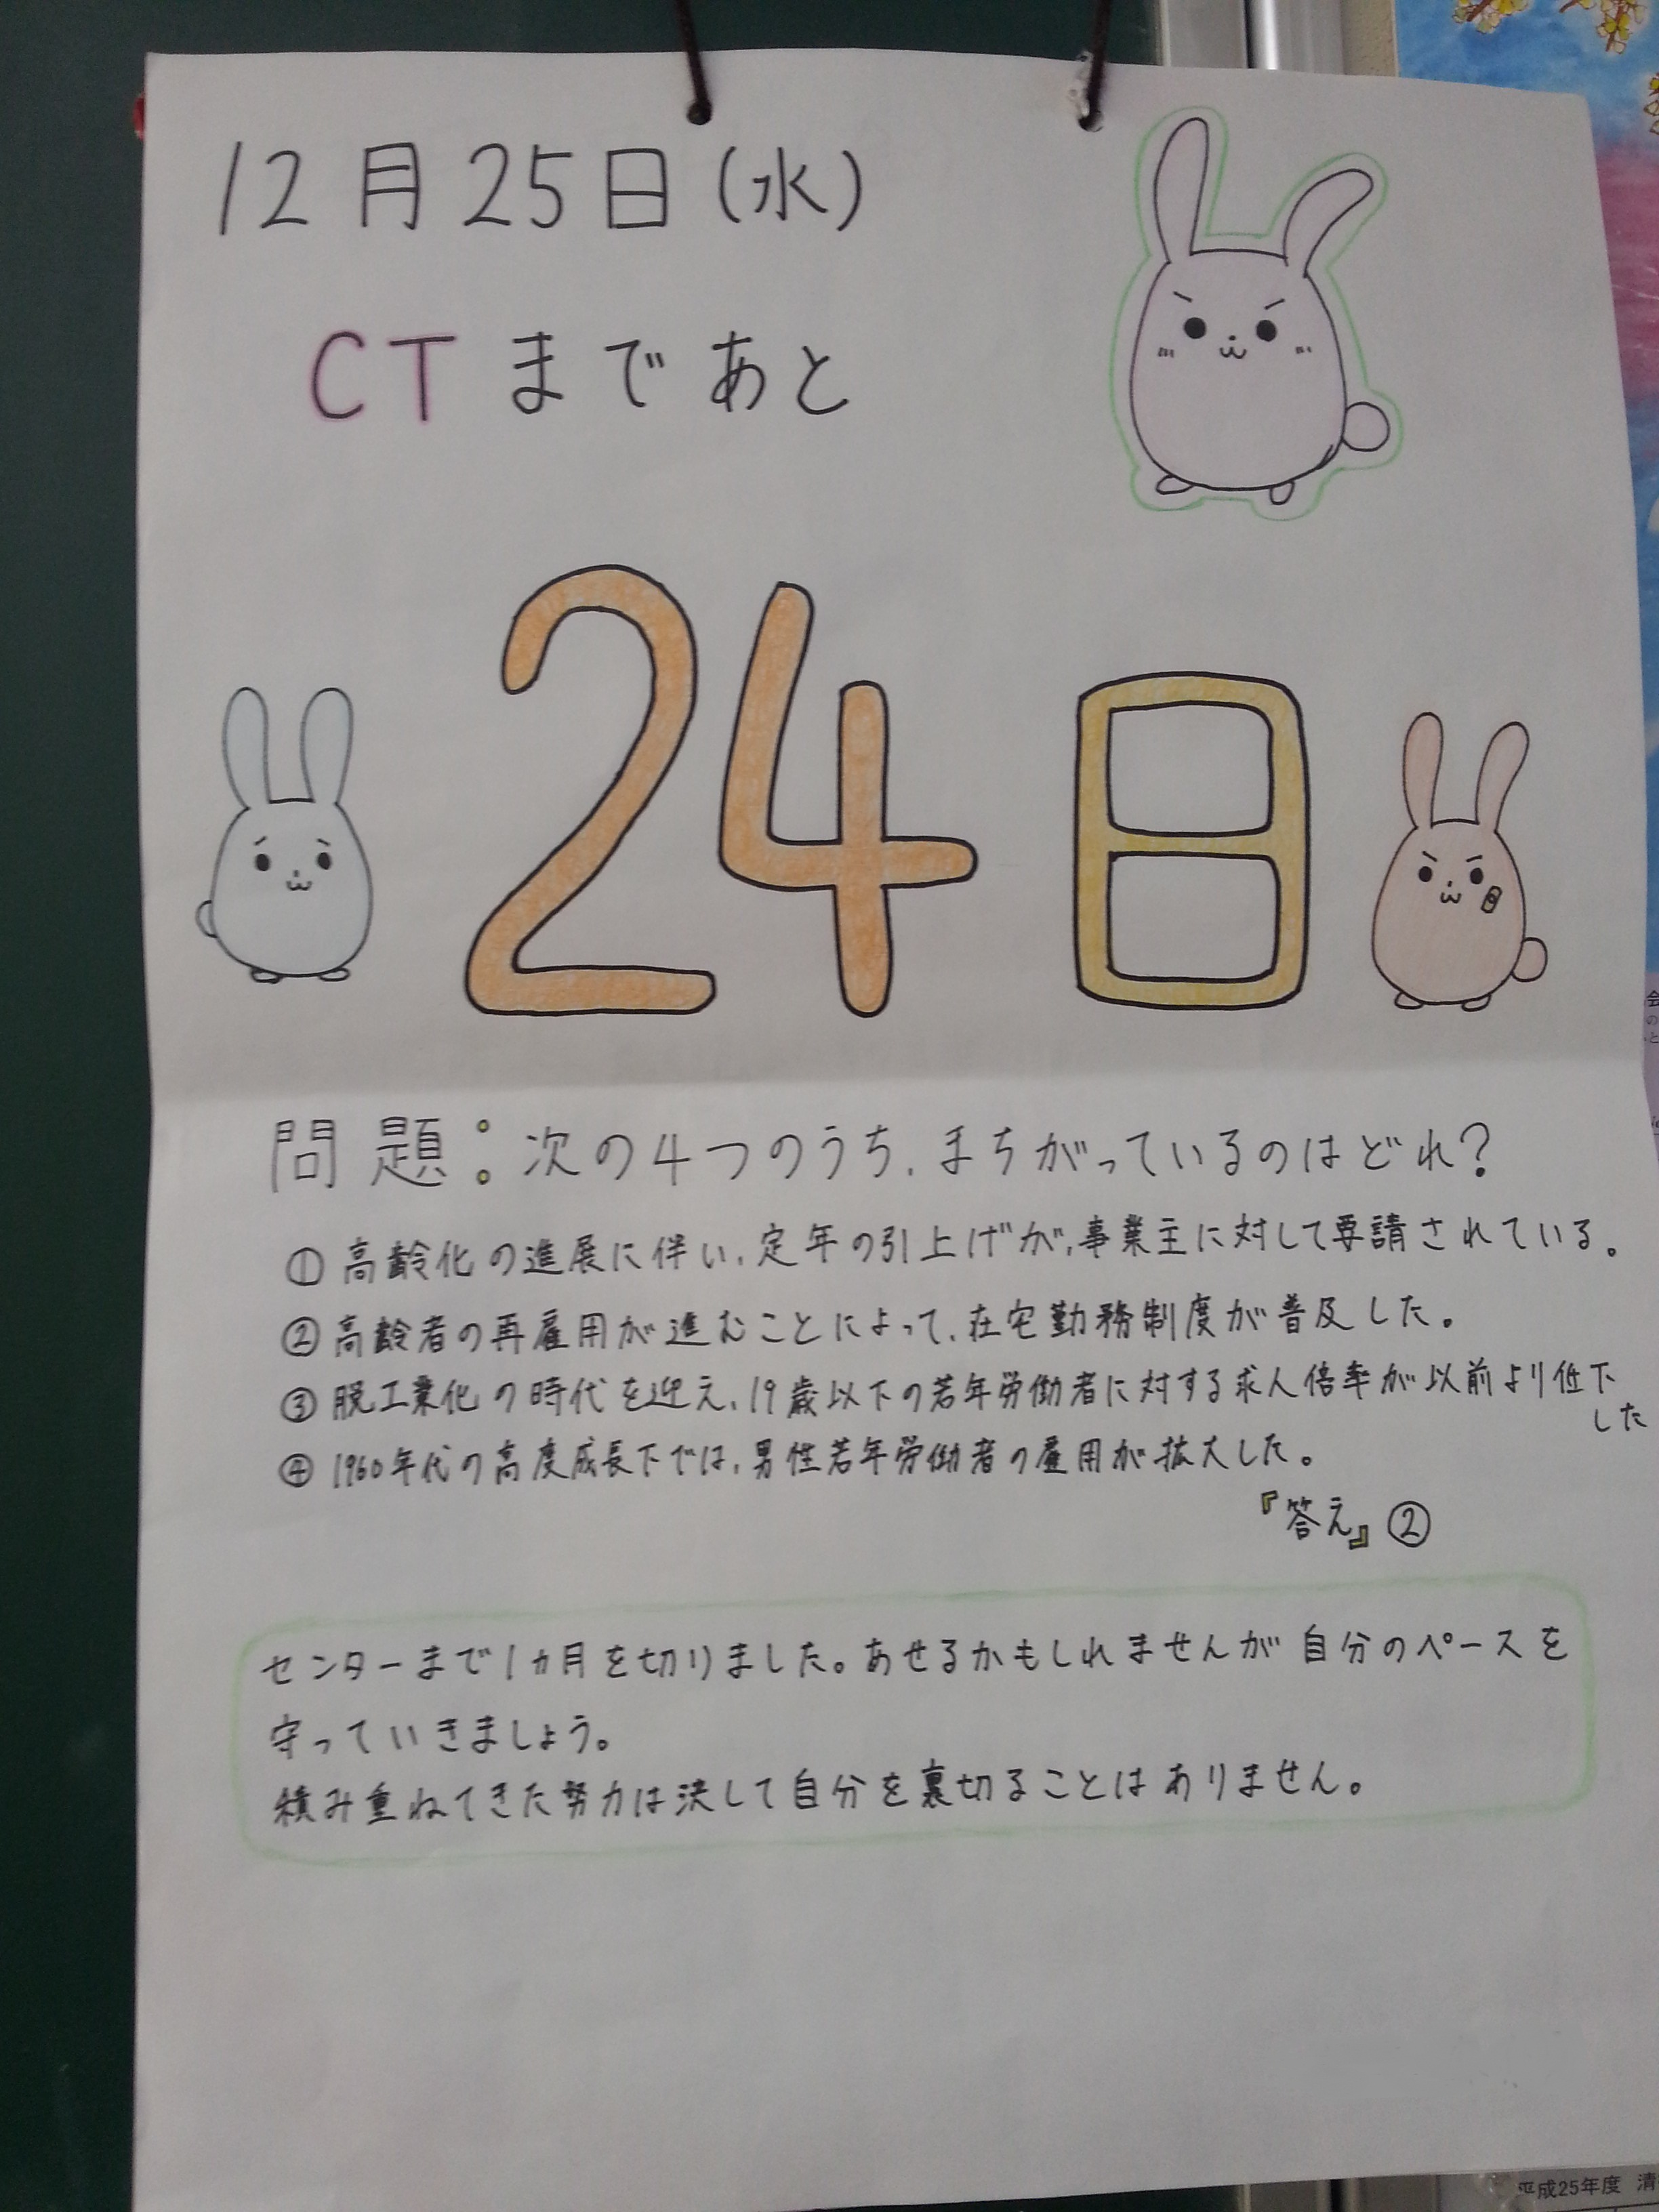 12月25日(水)
CTまであと
24日
問題:次の4つのうち、まちがっているのはどれ?
①高齢化の進展に伴い、定年の引上げが、事業主に対して要請されている。
②高齢者の再雇用が進むことによって、在宅勤務制度が普及した。
③脱工業化の時代を迎え、19歳以下の若年労働者に対する求人倍率が以前より低下
した
④1960年代の高度成長下では、男性若年労働者の雇用が拡大した。
『答え』②
センターまで1ヵ月を切りました。あせるかもしれませんが自分のペースを
守っていきましょう。
積み重ねてきた努力は決して自分を裏切ることはありません。
平成25年度 清